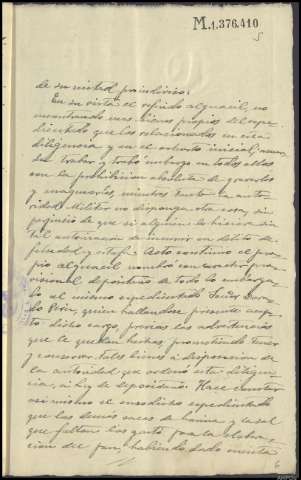 M.1,376,410
5
de su mitad proindiviso.
En su vista el referido alguacil, no
encontrando mas bienes propios del expe-
dientado que los relacionados en esta
diligencia y en el extracto inicial, acuer-
da trabar y trabó embargo en todos ellos
con la prohibicion absoluta de gravarlos
y enagenarlos mientras tanto la auto-
ridad Militar no disponga otra cosa, sin
perjuicio de que si alguien lo hiciera sin
tal autorizacion de incurrir en delito de
falsedad y estafa. Acto continuo el pro-
pio alguacil nombró con caracter pro-
visional depositario de todo lo embarga-
do al mismo expedientado
Pérez, quien hallandose presente acep-
ta dicho cargo, previas las advertencias
que le quedan hechas, prometiendo tener
y conservar tales bienes a disposicion de
la autoridad que ordenó esta diligen-
cia, a ley de depositario. Hace constar
asi mismo el susodicho expedientado
que los demás sacos de harina y la sal
que faltan los gastó para la elabora-
cion del pan, habiendo dado cuenta
6